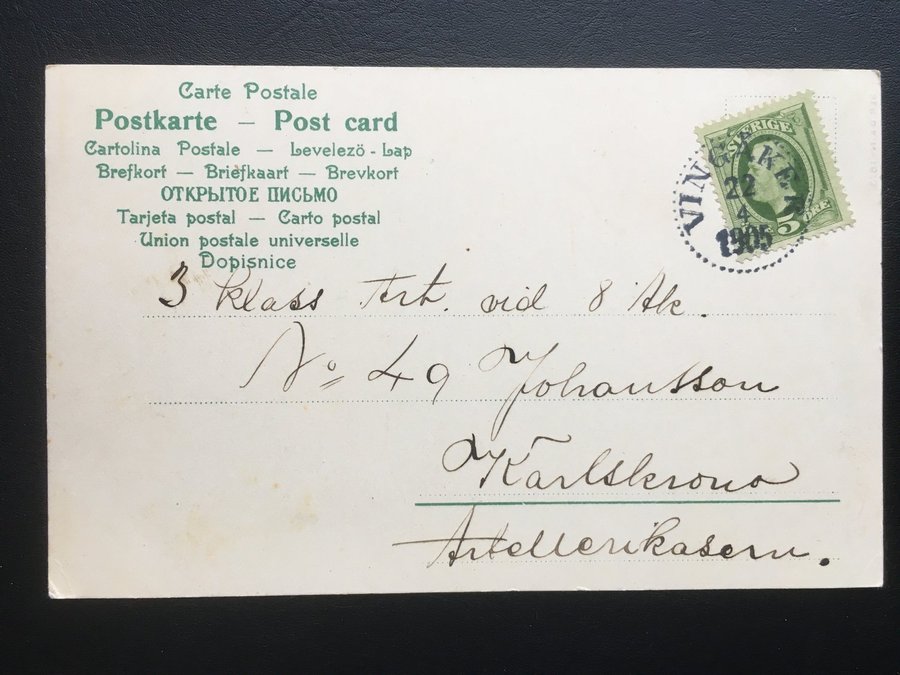 Carte Postale
Postkarte — Post card
Cartolina Postale — Levelezö-Lap
Brefkort — Briefkaart — Brevkort
ОТКРЫТОЕ ПИСЬМО
Tarjeta postal — Carto postal
Union postale universelle
Dopisnice
SVERIGE
5 ÖRE
VINGÅKER
22
4
1905
3 klass Art. vid 8 Ak.
No 49 Johansson
Karlskrona
Artellerikasern.